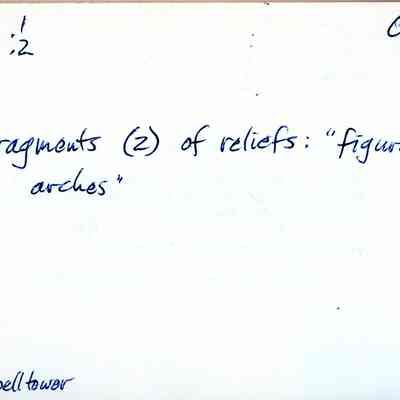 :1
:2
ragments (2) of reliefs: "figur
arches"
bell tower